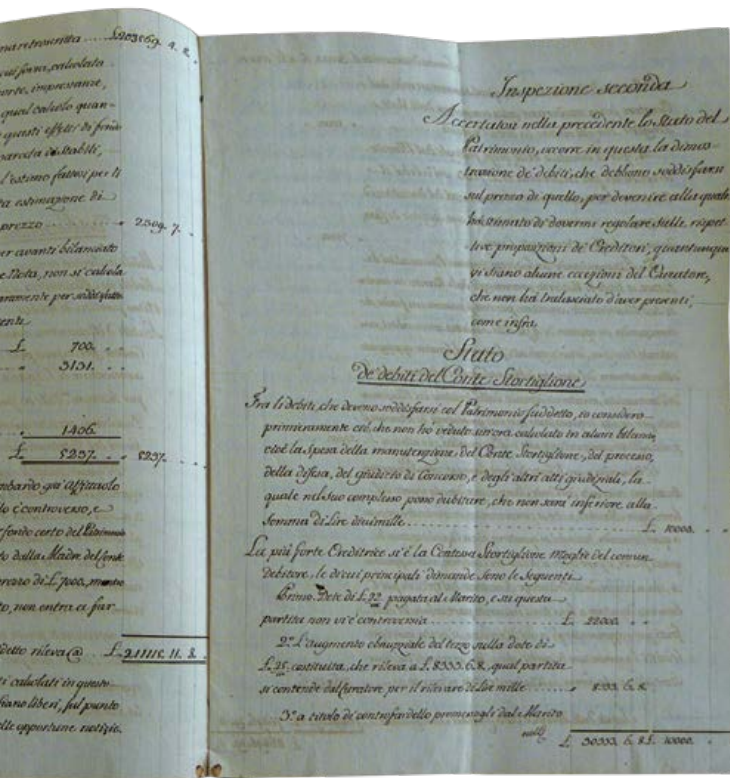 na retroscritta ..... £ 203569. 4. 8.
calcolata
qual calcolo quan-
questi effetti di fondo
l'estimo fattosi per li
ta estimazione di
prezzo ..... " 2509. 7.
er avanti bilanciato
e Nota, non si calcola
£ 700.
" 3131.
" 1406.
£ 5237. " 5237.
lo è controverso, e
fondo certo del Patrimonio
to dalla Madre del Conte
prezzo di £. 7000,
to, non entra a far
detto rileva @ £ 211115. 11. 8.
ti calcolati in questo
siano liberi, sul punto
elle opportune notizie.
Inspezione seconda
Accertatosi nella precedente lo Stato del
Patrimonio, occorre in questa la dimos-
trazione de' debiti, che debbono soddisfarsi
sul prezzo di quello, per devenire alla quale
hò stimato di dovermi regolare sulle rispet-
tive proposizioni de' Creditori, quantunque
vi siano alcune eccezioni del Curatore,
che non hò tralasciato d'aver presenti,
come infra.
Stato
de' debiti del Conte Stortiglione
Fra li debiti, che devono soddisfarsi col Patrimonio suddetto, io considero
primieramente ciò, che non hò veduto sin'ora calcolato in alcun bilancio,
cioè la spesa della manutenzione del Conte Stortiglione, del processo,
della difesa, del giudizio di Concorso, e degli altri atti giudiziali, la
quale nel suo complesso posso dubitare, che non sarà inferiore alla
somma di Lire diecimille ..... £. 10000. . .
La più forte Creditrice si è la Contessa Stortiglione Moglie del comun
Debitore, le di cui principali dimande sono le seguenti
Primo. Dote di £. 22. pagata al Marito, e su questa
partita non vi è controversia ..... £. 22000. . .
2.° L'augmento obnuziale del terzo sulla dote di
£. 25. costituita, che rileva a £. 8333. 6. 8. qual partita
si contende dal Curatore per il rilevare di Lire mille ..... " 8333. 6. 8.
3.° a titolo di controfardello promessogli dal Marito
£. 30333. 6. 8. £. 10000. . .